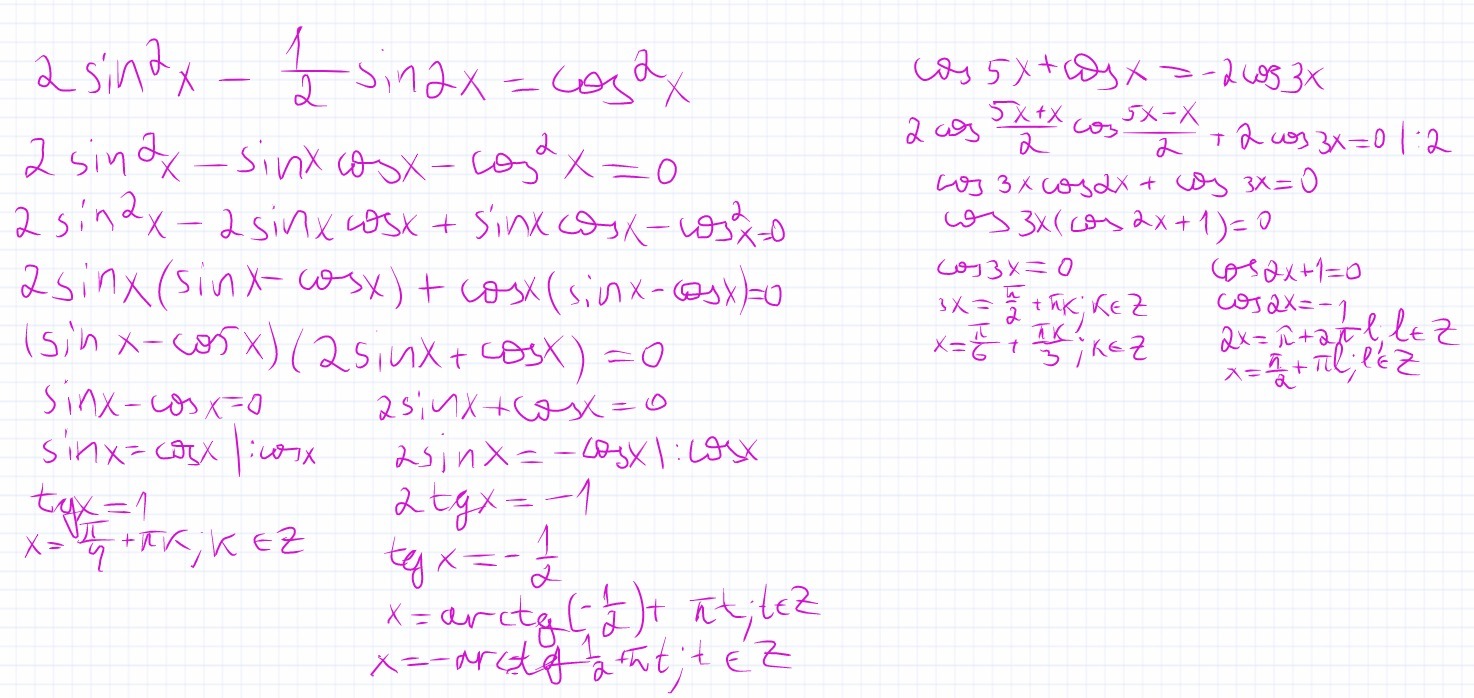 2 sin²x − 1/2 sin2x = cos²x
2 sin²x − sinx cosx − cos²x = 0
2 sin²x − 2 sinx cosx + sinx cosx − cos²x = 0
2 sinx (sinx − cosx) + cosx (sinx − cosx) = 0
(sin x − cos x) (2 sinx + cosx) = 0
sinx − cosx = 0
sinx = cosx | : cosx
tgx = 1
x = π/4 + πk; k ∈ Z
2 sinx + cosx = 0
2 sinx = − cosx | : cosx
2 tgx = −1
tg x = − 1/2
x = arctg (− 1/2) + πt; t ∈ Z
x = − arctg 1/2 + πt; t ∈ Z
cos 5x + cos x = −2 cos 3x
2 cos (5x+x)/2 cos (5x−x)/2 + 2 cos 3x = 0 | : 2
cos 3x cos2x + cos 3x = 0
cos 3x (cos 2x + 1) = 0
cos 3x = 0
3x = π/2 + πk; k ∈ Z
x = π/6 + πk/3; k ∈ Z
cos2x + 1 = 0
cos 2x = −1
2x = π + 2πl, l ∈ Z
x = π/2 + πl; l ∈ Z